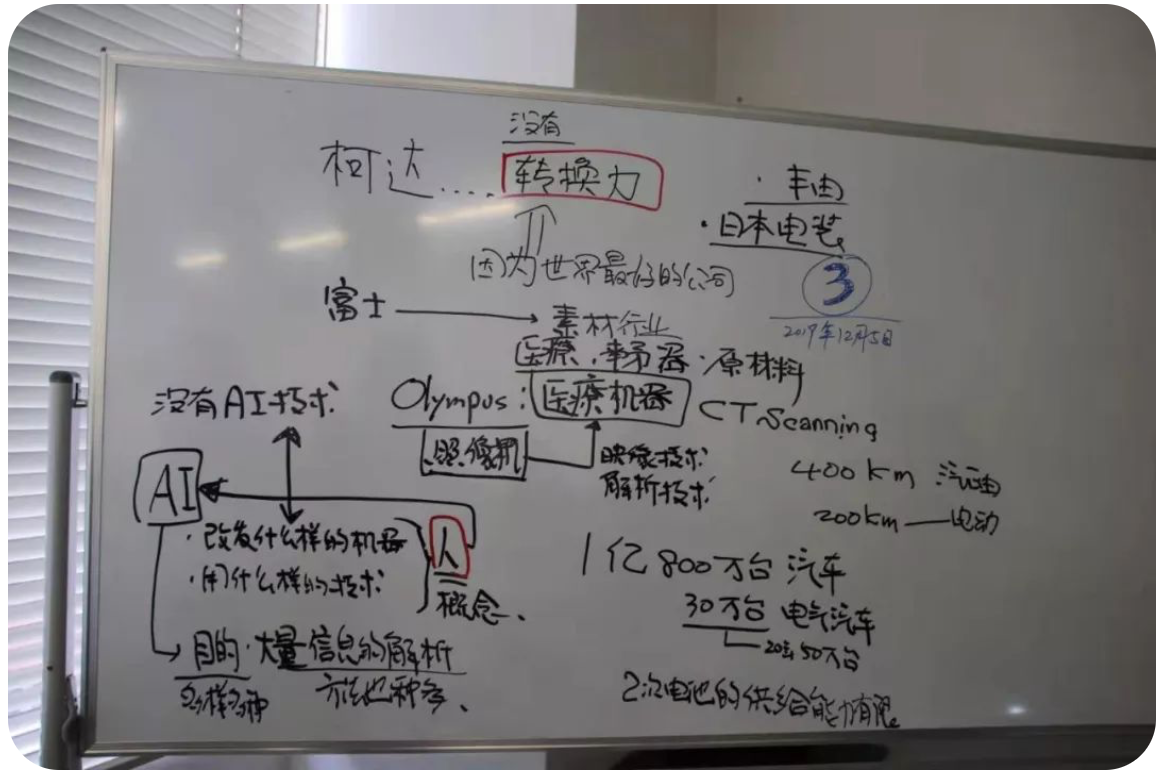 没有
柯达....转换力
因为世界最好的公司
·丰田
·日本电装
3
2019年12月5日
富士 → 素材行业
医療
·原材料
Olympus: 医療机器
CT Scanning
照像机
映像技术
解析技术
400km 汽油
200km — 电动
没有AI技术
AI
·改发什么样的机器
·用什么样的技术
人
概念、
目的·大量信息的解析
多样多种
方法也种多、
1亿800万台 汽车
30万台 电气汽车
50万台
2次电池的供给能力有限。